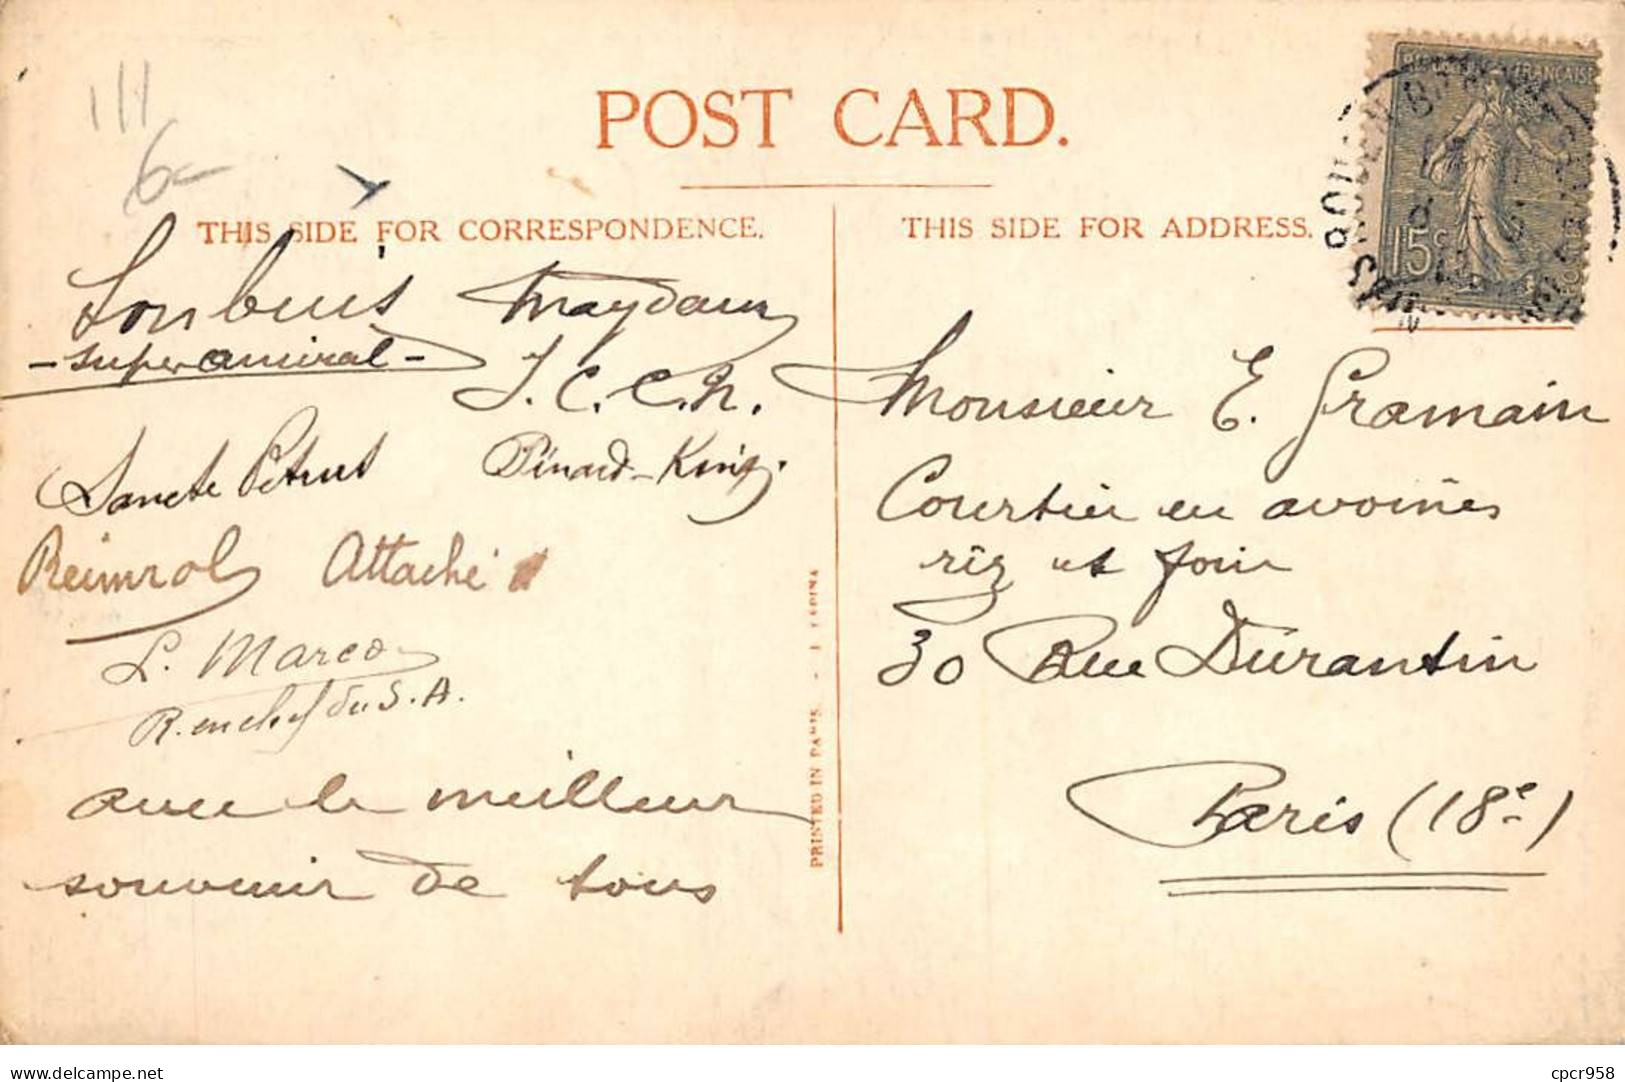 111
6-
POST CARD.
THIS SIDE FOR CORRESPONDENCE.
THIS SIDE FOR ADDRESS.
15c
Maydaux
- super amiral -
J. C. C. N.
Sancte Petrus
Pinard-King.
Reimrol Attaché
L. Marco
R. en chef du S. A.
avec le meilleur
souvenir de tous
PRINTED IN PARIS.
Monsieur E. Gramain
Courtier en avoines
riz et foin
30 Rue Durantin
Paris (18e)
delcampe.net
cpcr958